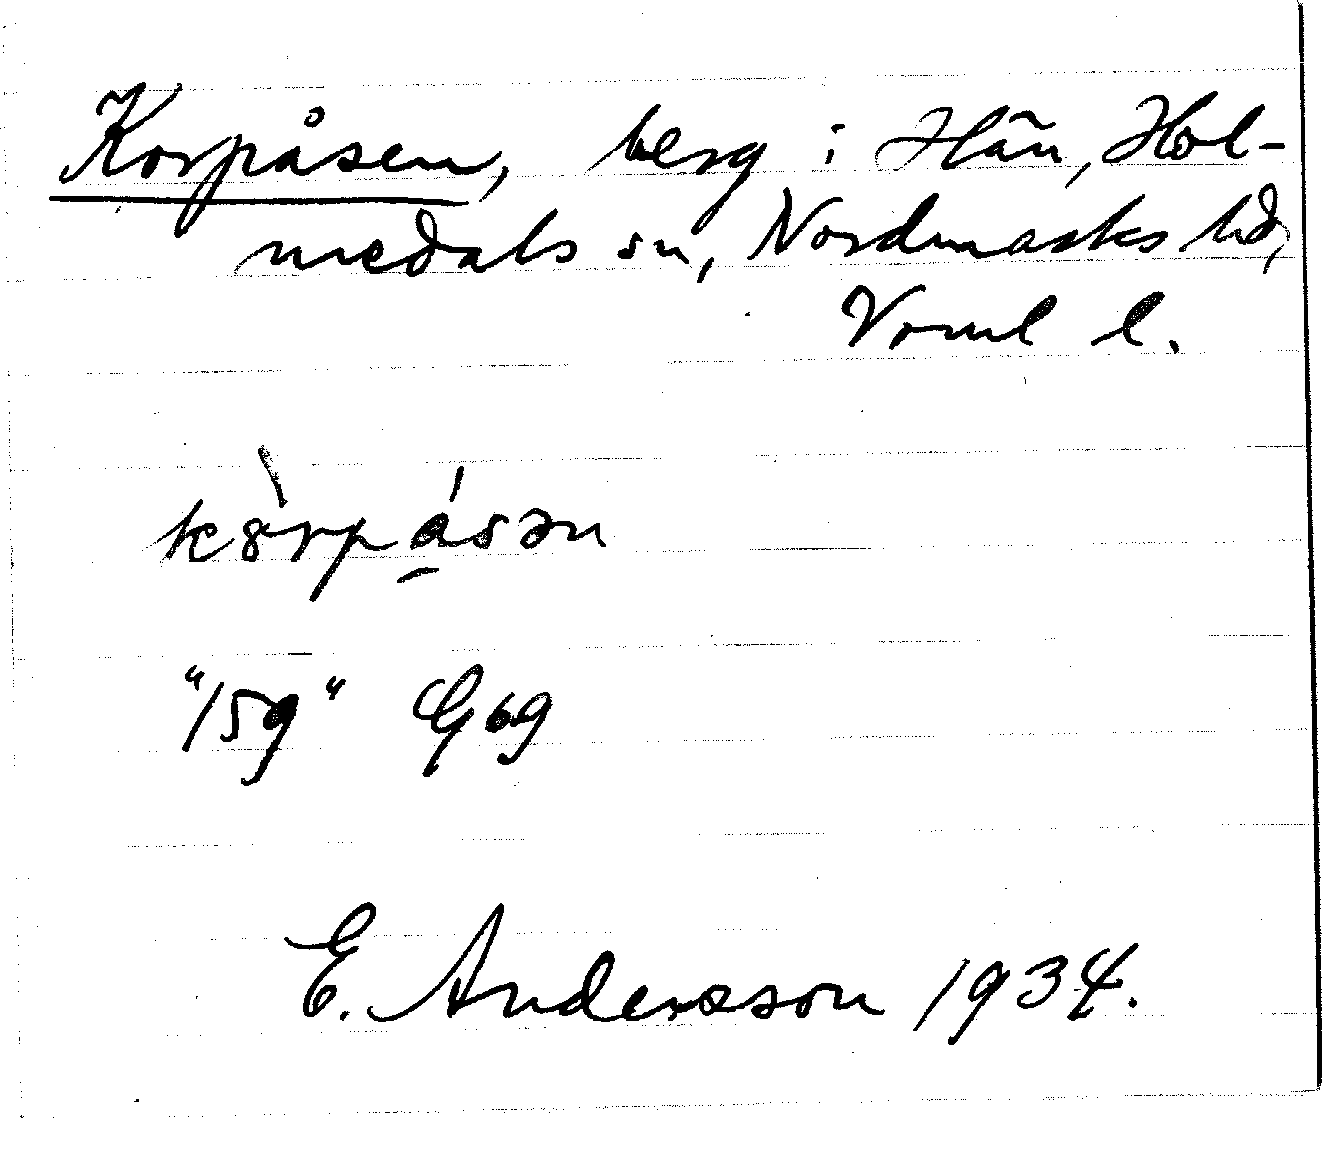 Korpåsen, berg i Hän, Hol-
medals sn, Nordmarks hd,
Vrml l.
"159" Gbg
E. Andersson 1934.